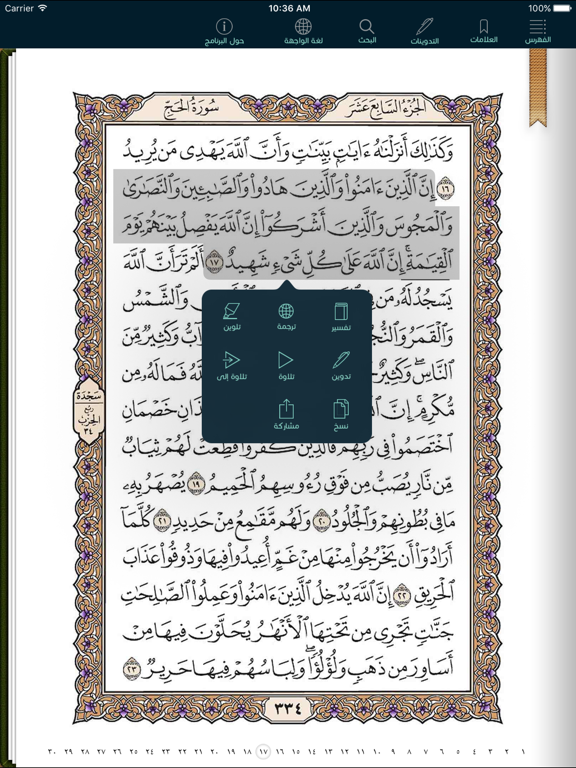 Carrier 10:36 AM 100%
الفهرس العلامات التدوينات البحث لغة الواجهة حول البرنامج
الجزء السابع عشر سورة الحج
وَكَذَٰلِكَ أَنزَلْنَٰهُ ءَايَٰتٍۭ بَيِّنَٰتٍ وَأَنَّ ٱللَّهَ يَهْدِى مَن يُرِيدُ
١٦ إِنَّ ٱلَّذِينَ ءَامَنُوا۟ وَٱلَّذِينَ هَادُوا۟ وَٱلصَّٰبِـِٔينَ وَٱلنَّصَٰرَىٰ
وَٱلْمَجُوسَ وَٱلَّذِينَ أَشْرَكُوٓا۟ إِنَّ ٱللَّهَ يَفْصِلُ بَيْنَهُمْ يَوْمَ
ٱلْقِيَٰمَةِ ۚ إِنَّ ٱللَّهَ عَلَىٰ كُلِّ شَىْءٍ شَهِيدٌ ١٧ أَلَمْ تَرَ أَنَّ ٱللَّهَ
يَسْجُدُ لَهُۥ مَن وَٱلشَّمْسُ
وَٱلْقَمَرُ وَٱلنُّجُ وَكَثِيرٌ مِّنَ
ٱلنَّاسِ ۖ وَكَثِيرٌ ٱللَّهُ فَمَا لَهُۥ مِن
مُّكْرِمٍ ۚ إِنَّ خَصْمَانِ
ٱخْتَصَمُوا۟ فِى رَبِّهِمْ ۖ فَٱلَّذِينَ كَفَرُوا۟ قُطِّعَتْ لَهُمْ ثِيَابٌ
مِّن نَّارٍ يُصَبُّ مِن فَوْقِ رُءُوسِهِمُ ٱلْحَمِيمُ ١٩ يُصْهَرُ بِهِۦ
مَا فِى بُطُونِهِمْ وَٱلْجُلُودُ ٢٠ وَلَهُم مَّقَٰمِعُ مِنْ حَدِيدٍ ٢١ كُلَّمَآ
أَرَادُوٓا۟ أَن يَخْرُجُوا۟ مِنْهَا مِنْ غَمٍّ أُعِيدُوا۟ فِيهَا وَذُوقُوا۟ عَذَابَ
ٱلْحَرِيقِ ٢٢ إِنَّ ٱللَّهَ يُدْخِلُ ٱلَّذِينَ ءَامَنُوا۟ وَعَمِلُوا۟ ٱلصَّٰلِحَٰتِ
جَنَّٰتٍ تَجْرِى مِن تَحْتِهَا ٱلْأَنْهَٰرُ يُحَلَّوْنَ فِيهَا مِنْ
أَسَاوِرَ مِن ذَهَبٍ وَلُؤْلُؤًا ۖ وَلِبَاسُهُمْ فِيهَا حَرِيرٌ ٢٣
تفسير ترجمة تلوين
تدوين تلاوة تلاوة إلى
نسخ مشاركة
سجدة
ربع
الحزب
٣٤
٣٣٤
١ ٢ ٣ ٤ ٥ ٦ ٧ ٨ ٩ ١٠ ١١ ١٢ ١٣ ١٤ ١٥ ١٦ ١٧ ١٨ ١٩ ٢٠ ٢١ ٢٢ ٢٣ ٢٤ ٢٥ ٢٦ ٢٧ ٢٨ ٢٩ ٣٠